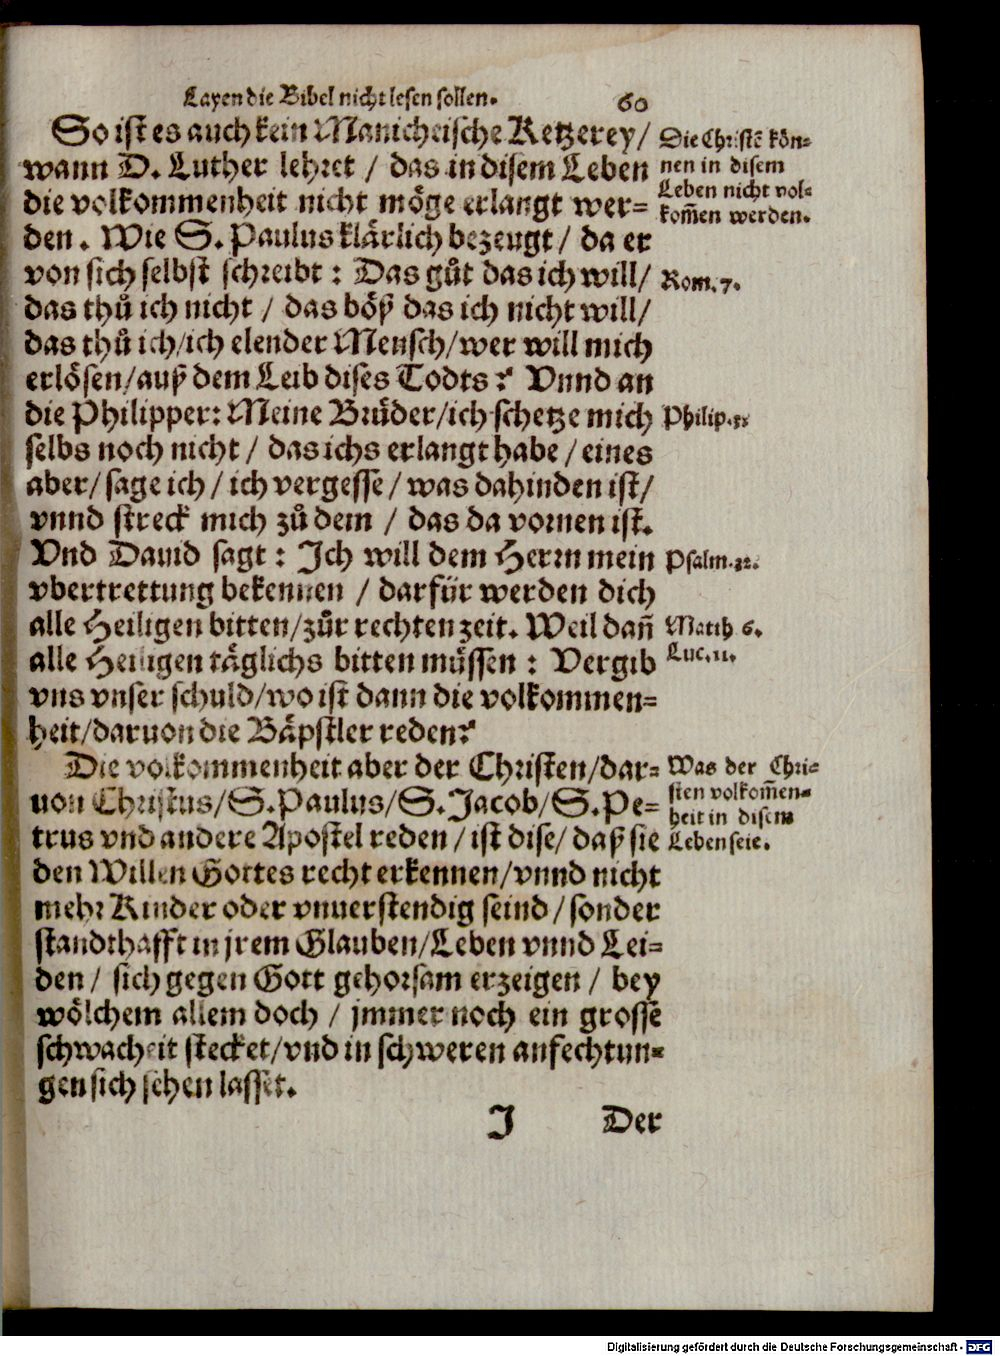 Layen die Bibel nicht lesen sollen.
60
So ist es auch kein Manicheische Ketzerey/
wann D. Luther lehret / das in disem Leben
die volkommenheit nicht möge erlangt wer-
den. Wie S. Paulus klärlich bezeugt / da er
von sich selbst schreibt: Das gůt das ich will/
das thů ich nicht / das böß das ich nicht will/
das thů ich/ich elender Mensch/wer will mich
erlösen/auß dem Leib dises Todts? Vnnd an
die Philipper: Meine Brüder/ich schetze mich
selbs noch nicht / das ichs erlangt habe / eines
aber/sage ich / ich vergesse / was dahinden ist/
vnnd streck mich zů dem / das da vornen ist.
Vnd Dauid sagt: Ich will dem Herrn mein
vbertrettung bekennen / darfür werden dich
alle Heiligen bitten/zůr rechten zeit. Weil dañ
alle Heiligen täglichs bitten müssen: Vergib
vns vnser schuld/wo ist dann die volkommen-
heit/daruon die Bäpstler reden?
Die volkommenheit aber der Christen/dar-
uon Christus/S. Paulus/S. Jacob/S. Pe-
trus vnd andere Apostel reden / ist dise/ daß sie
den Willen Gottes recht erkennen/vnnd nicht
mehr Kinder oder vnuerstendig seind/sonder
standthafft in jrem Glauben/Leben vnnd Lei-
den / sich gegen Gott gehorsam erzeigen / bey
wölchem allem doch / jmmer noch ein grosse
schwacheit stecket/vnd in schweren anfechtun-
gen sich sehen lasset.
J Der
Die Christē kön-
nen in disem
Leben nicht vol-
kom̄en werden.
Rom. 7.
Philip. 3.
Psalm. 32.
Matth 6.
Luc. 11.
Was der Chri-
sten volkom̄en-
heit in disem
Leben seie.
Digitalisierung gefördert durch die Deutsche Forschungsgemeinschaft - DFG